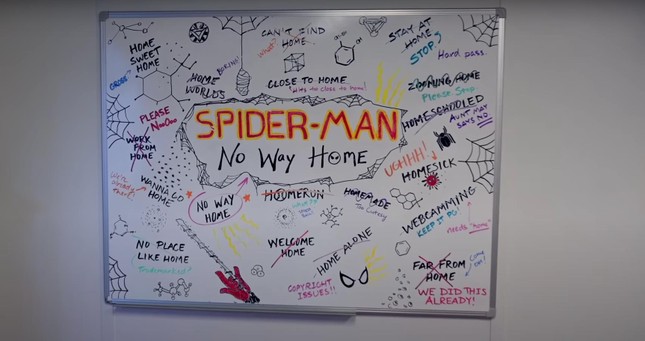 CAN'T FIND
HOME
What?
STAY AT
HOME
STOP?
Hard pass.
HOME
SWEET
HOME
GROSS!
BORING!
HOME
WORLDS
CLOSE TO HOME
"Hits too close to home!"
ZOOMING HOME
Please Stop
HOMESCHOOLED
AUNT MAY
SAYS NO
PLEASE
NoOOo
SPIDER-MAN
No Way Home
WORK
FROM
HOME
UGHHH!
HOMESICK
WANNA GO
HOME
NO WAY
HOME
HOMERUN
HOMEMADE
WEBCAMMING
KEEP IT PG!
Needs "home"
NO PLACE
LIKE HOME
Trademarked!
WELCOME
HOME
HOME ALONE
COPYRIGHT
ISSUES!!
FAR FROM
HOME
COME ON!
WE DID THIS
ALREADY!